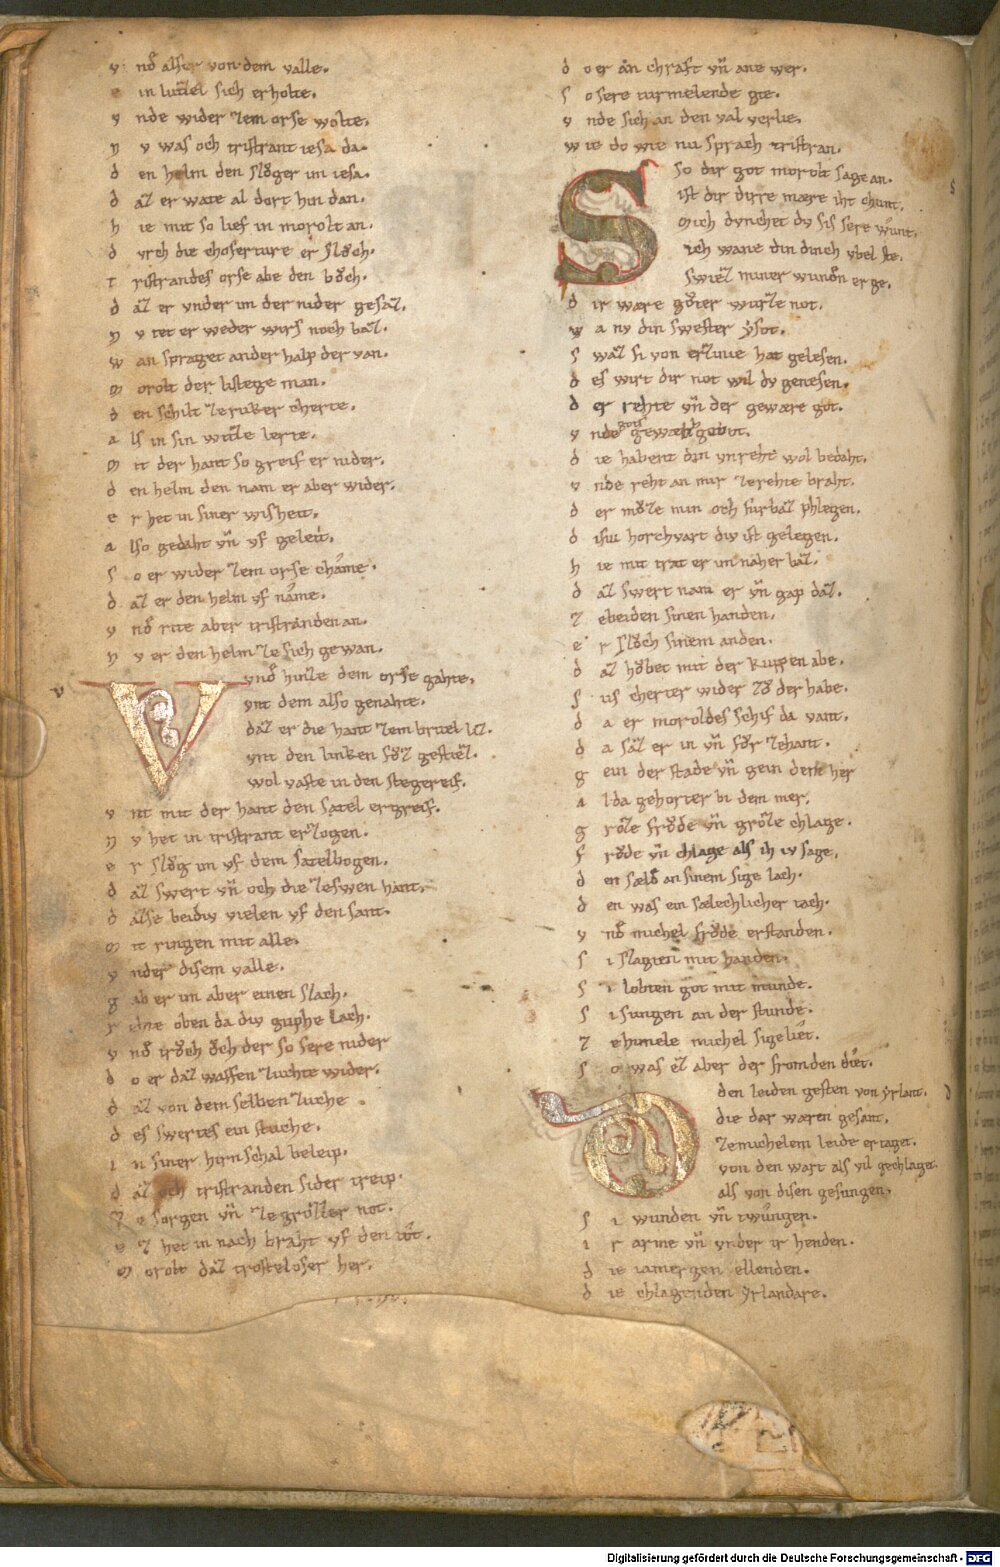 v nd͛ alser von dem valle.
e in lutzel sich erholte.
v nde wider zem orse wolte.
n v was och tristrant iesa da.
d en helm den slůger im iesa.
d az er wate al dort hin dan.
h ie mit so lief in morolt an.
d vrch die choferture er slůch.
t ristrandes orse abe den bůch.
d az er vnder im der nider gesaz.
n v tet er weder wirs noch baz.
w an spranget ander halp der van.
m orolt der listege man.
d en schilt ze ruker cherte.
a ls in sin witze lerte.
m it der hant so greif er nider.
d en helm den nam er aber wider.
e r het in siner wisheit.
a lso gedaht vn̄ vf geleit.
s o er wider zem orse chæme.
d az er den helm vf næme.
v nd͛ rite aber tristranden an.
n v er den helm ze sich gewan.
v
V vnd͛ hinze dem orse gahte.
vnt dem also genahte.
daz er die hant zem britel liz.
vnt den linken fůz gestiez.
wol vaste in den stegereif.
v nt mit der hant den satel ergreif.
n v het in tristrant erzogen.
e r slůg im vf dem satelbogen.
d az swert vn̄ och die zeswen hant.
d aze beidiv vielen vf den sant.
m it ringen mit alle.
v nder disem valle.
g ab er im aber einen slach.
r ehte oben da div guphe lach.
v nd͛ trůch ůch der so sere nider
d o er daz waffen zuchte wider.
d az von dem selben zuche
d es swertes ein stuche.
i n siner hirnschal beleip.
d az och tristranden sider treip.
z e sorgen vn̄ ze grozzer not.
e z het in nach braht vf den tot.
m orolt daz trosteloser her.
d o er an chraft vn̄ ane wer.
s o sere turmelende gie.
v nde sich an den val verlie.
w ie do wie nu sprach tristran.
S so dir got morolt sage an.
ist dir dirre mære iht chunt.
mich dvnchet dv sis sere wunt.
ich wane din dinch vbel ste.
swiez miner wundn̄ er ge.
s
d ir wære gůter wurze not.
w a ny din swester ysot.
s waz si von erzinie hat gelesen.
d es wirt dir not wil dv genesen.
d er rehte vn̄ der gewære got.
v nde gotes gewærh gebot.
d ie habent din vnreht wol bedaht.
v nde reht an mir ze rehte braht.
d er můze min och furbaz phlegen.
d isiu horchvart div ist gelegen.
h ie mit trat er im naher baz.
d az swert nam er vn̄ gap daz.
z e beiden sinen handen.
e r slůch sinem anden.
d az hůbet mit der kuppen abe.
s us cherter wider zů der habe.
d a er moroldes schif da vant.
d a saz er in vn̄ fůr zehant.
g ein der stade vn̄ gein dem her
a l da gehorter bi dem mer.
g roze frůde vn̄ groze chlage.
f rode vn̄ chlage als ih iv sage.
d en sæld͛ an sinem sige lach.
d en was ein sælechlicher tach.
v nd͛ michel frůde erstanden.
s i slagten mit handen.
s i lobten got mit munde.
s i sungen an der stunde.
z e himele michel sige liet.
s o was ez aber der fromden diet.
D den leiden gesten von yrlant.
die dar waren gesant.
ze michelem leide ertaget.
von den wart als vil gechlaget.
als von disen gesungen.
d
s i wunden vn̄ twungen.
i r arme vn̄ vnder ir henden.
d ie iamergen ellenden.
d ie chlagenden yrlandare.
Digitalisierung gefördert durch die Deutsche Forschungsgemeinschaft - DFG